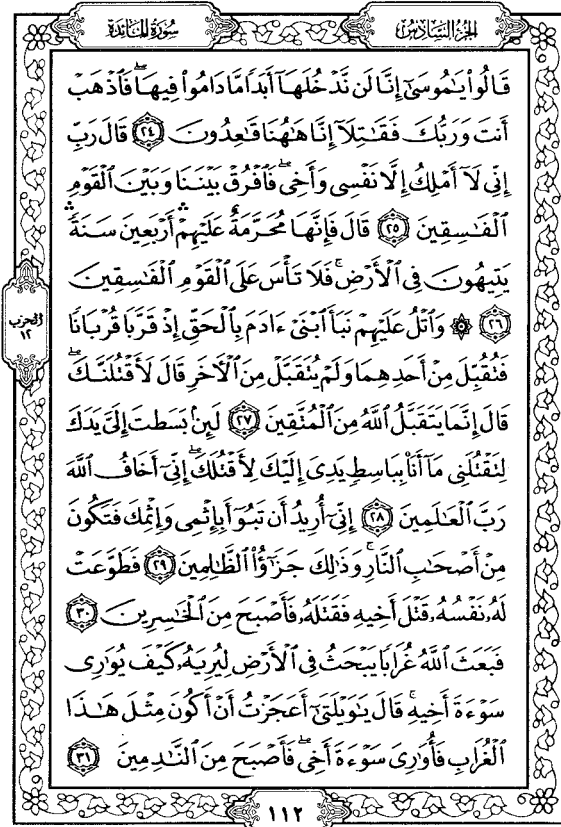 الجزء السادس
سورة المائدة
قَالُوا۟ يَـٰمُوسَىٰٓ إِنَّا لَن نَّدْخُلَهَآ أَبَدًا مَّا دَامُوا۟ فِيهَا ۖ فَٱذْهَبْ
أَنتَ وَرَبُّكَ فَقَـٰتِلَآ إِنَّا هَـٰهُنَا قَـٰعِدُونَ ٢٤ قَالَ رَبِّ
إِنِّى لَآ أَمْلِكُ إِلَّا نَفْسِى وَأَخِى ۖ فَٱفْرُقْ بَيْنَنَا وَبَيْنَ ٱلْقَوْمِ
ٱلْفَـٰسِقِينَ ٢٥ قَالَ فَإِنَّهَا مُحَرَّمَةٌ ۛ عَلَيْهِمْ ۛ أَرْبَعِينَ سَنَةً ۛ
يَتِيهُونَ فِى ٱلْأَرْضِ ۚ فَلَا تَأْسَ عَلَى ٱلْقَوْمِ ٱلْفَـٰسِقِينَ
٢٦ ۞ وَٱتْلُ عَلَيْهِمْ نَبَأَ ٱبْنَىْ ءَادَمَ بِٱلْحَقِّ إِذْ قَرَّبَا قُرْبَانًا
فَتُقُبِّلَ مِنْ أَحَدِهِمَا وَلَمْ يُتَقَبَّلْ مِنَ ٱلْـَٔاخَرِ قَالَ لَأَقْتُلَنَّكَ ۖ
قَالَ إِنَّمَا يَتَقَبَّلُ ٱللَّهُ مِنَ ٱلْمُتَّقِينَ ٢٧ لَئِنۢ بَسَطتَ إِلَىَّ يَدَكَ
لِتَقْتُلَنِى مَآ أَنَا۠ بِبَاسِطٍ يَدِىَ إِلَيْكَ لِأَقْتُلَكَ ۖ إِنِّىٓ أَخَافُ ٱللَّهَ
رَبَّ ٱلْعَـٰلَمِينَ ٢٨ إِنِّىٓ أُرِيدُ أَن تَبُوٓأَ بِإِثْمِى وَإِثْمِكَ فَتَكُونَ
مِنْ أَصْحَـٰبِ ٱلنَّارِ ۚ وَذَٰلِكَ جَزَٰٓؤُا۟ ٱلظَّـٰلِمِينَ ٢٩ فَطَوَّعَتْ
لَهُۥ نَفْسُهُۥ قَتْلَ أَخِيهِ فَقَتَلَهُۥ فَأَصْبَحَ مِنَ ٱلْخَـٰسِرِينَ ٣٠
فَبَعَثَ ٱللَّهُ غُرَابًا يَبْحَثُ فِى ٱلْأَرْضِ لِيُرِيَهُۥ كَيْفَ يُوَٰرِى
سَوْءَةَ أَخِيهِ ۚ قَالَ يَـٰوَيْلَتَىٰٓ أَعَجَزْتُ أَنْ أَكُونَ مِثْلَ هَـٰذَا
ٱلْغُرَابِ فَأُوَٰرِىَ سَوْءَةَ أَخِى ۖ فَأَصْبَحَ مِنَ ٱلنَّـٰدِمِينَ ٣١
الحزب
١٢
١١٢